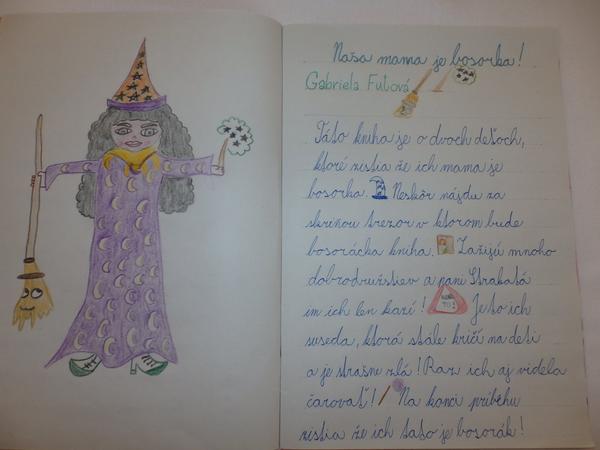 Naša mama je bosorka!
Gabriela Futová
Táto kniha je o dvoch deťoch,
ktoré zistia že ich mama je
bosorka. Neskôr nájdu za
skriňou trezor v ktorom bude
bosorácka kniha. Zažijú mnoho
dobrodružstiev a pani Strakatá
im ich len kazí! Je to ich
suseda, ktorá stále kričí na deti
a je strašne zlá! Raz ich aj videla
čarovať! Na konci príbehu
zistia že ich tato je bosorák!